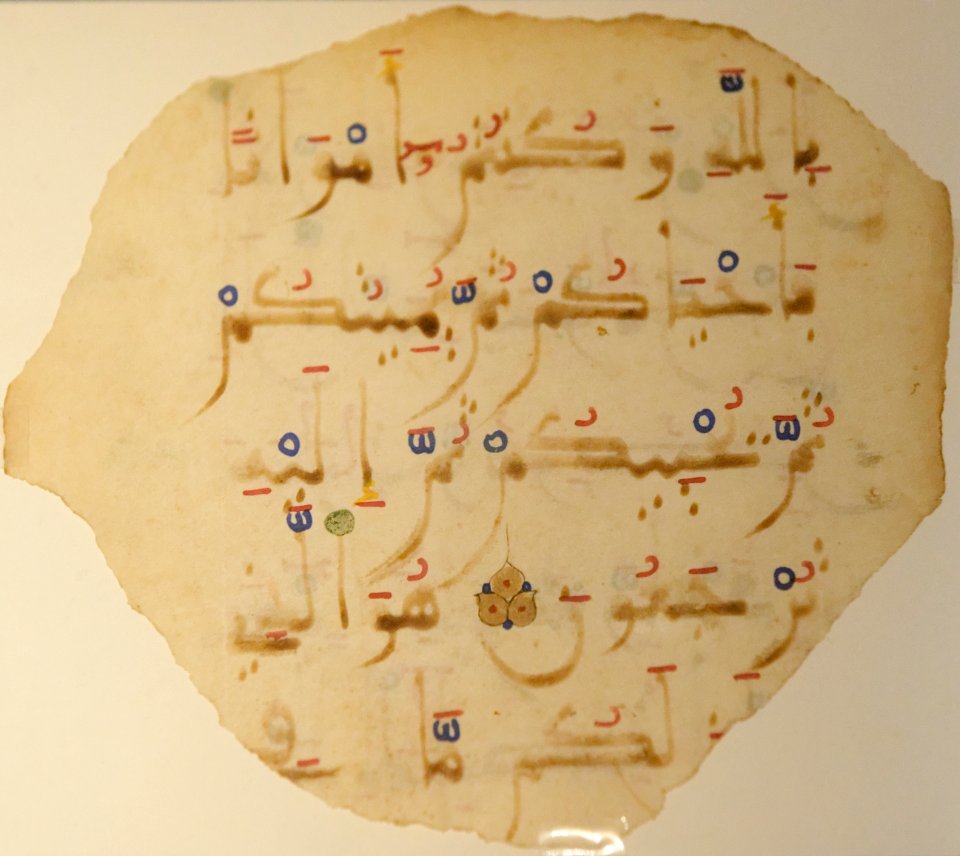 بِاللَّهِ وَكُنتُمُ أَمْوَاتًا
فَأَحْيَاكُمْ ثُمَّ يُمِيتُكُمْ
ثُمَّ يُحْيِيكُمْ ثُمَّ إِلَيْهِ
تُرْجَعُونَ هُوَ الَّذِي
لَكُم مَّا فِي